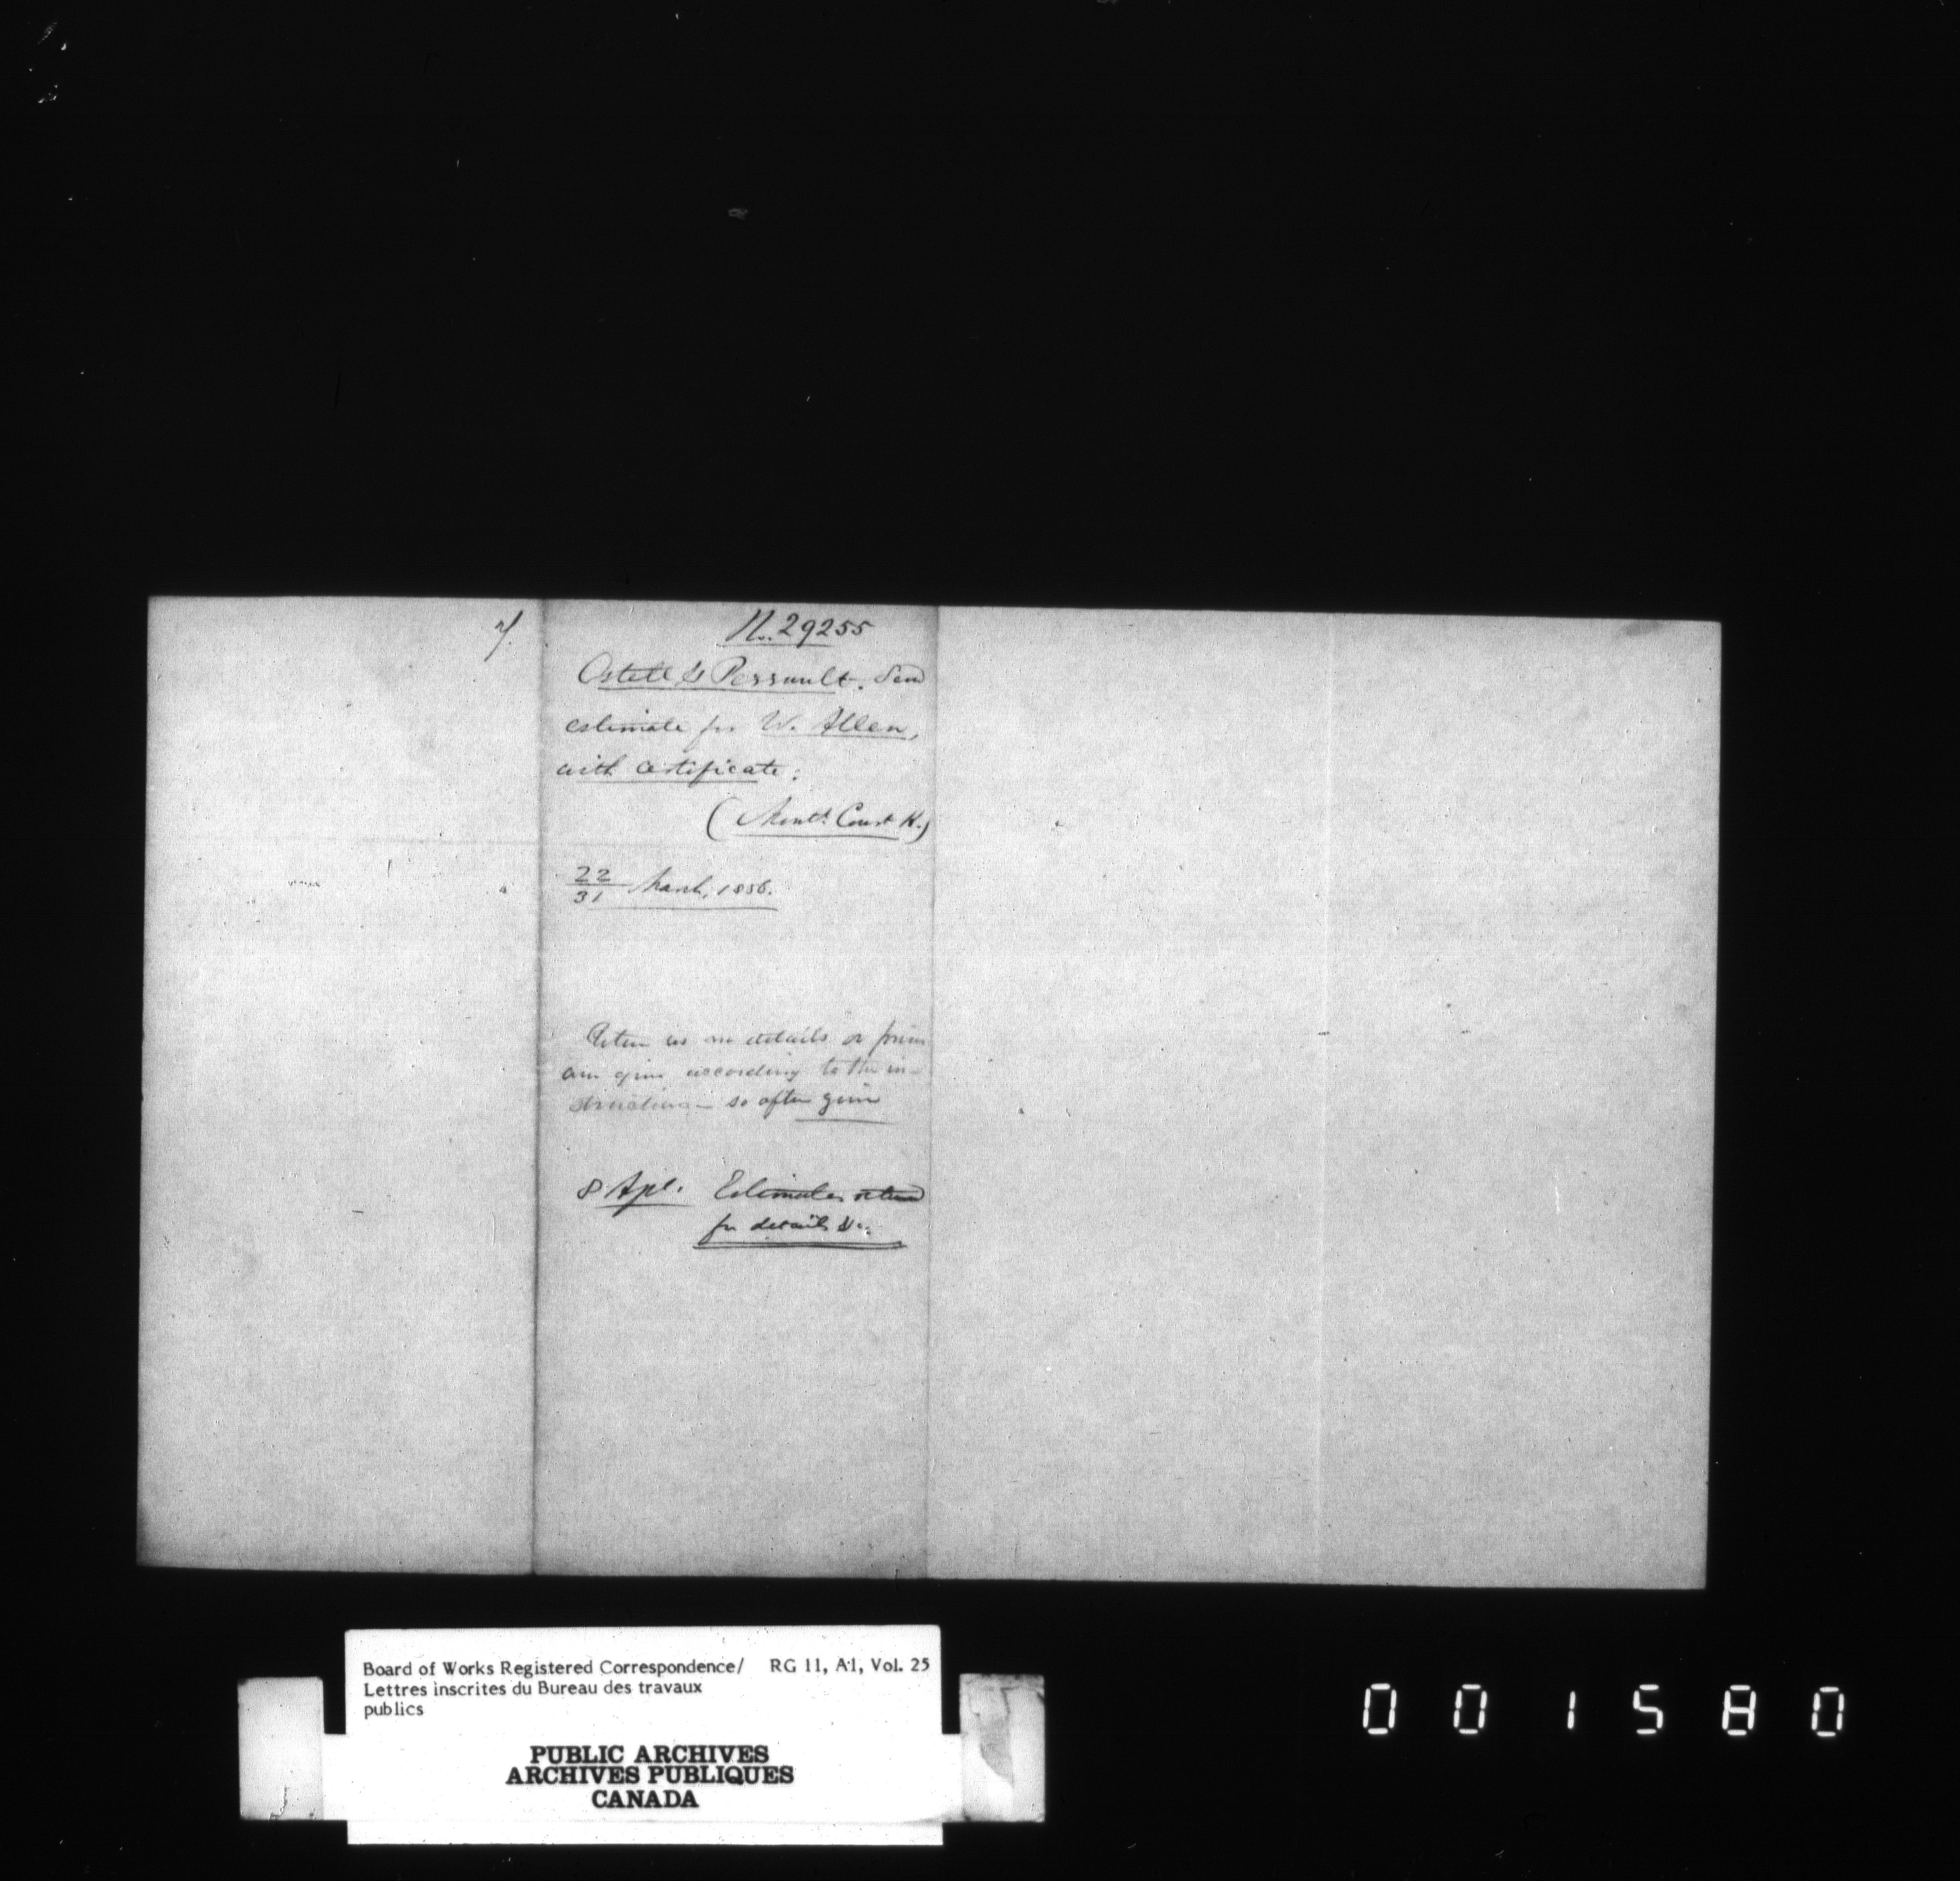 7.
No. 29255
Ostell & Perrault. Send
estimate for W. Allen,
with certificate:
(Montl. Court H.)
22/31 March, 1856.
Return as no details or prices
are given according to the in-
structions so often given
8 Apl. Estimates returned
for details &c.
Board of Works Registered Correspondence/ RG 11, A1, Vol. 25
Lettres inscrites du Bureau des travaux
publics
PUBLIC ARCHIVES
ARCHIVES PUBLIQUES
CANADA
001580